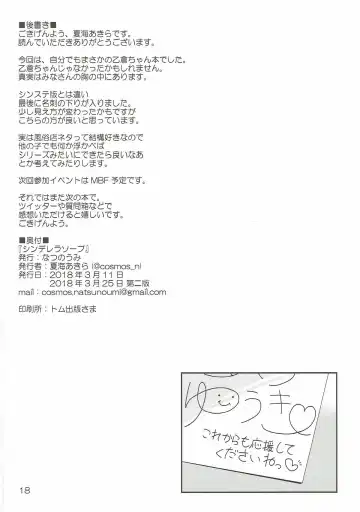 ■後書き■
ごきげんよう、夏海あきらです。
読んでいただきありがとうございます。
今回は、自分でもまさかの乙倉ちゃん本でした。
乙倉ちゃんじゃなかったかもしれません。
真実はみなさんの胸の中にあります。
シンステ版とは違い
最後に名刺の下りが入りました。
少し見え方が変わったかもですが
こちらの方が良いと思っています。
実は風俗店ネタって結構好きなので
他の子でも何か浮かべば
シリーズみたいにできたら良いなあ
とか考えてみたりします。
次回参加イベントは MBF 予定です。
それではまた次の本で。
ツイッターや質問箱などで
感想いただけると嬉しいです。
ごきげんよう。
■奥付■
『シンデレラソープ』
発行：なつのうみ
発行者：夏海あきら i@cosmos_ni
発行日：2018 年 3 月 11 日
2018 年 3 月 25 日 第二版
mail：cosmos.natsunoumi@gmail.com
印刷所：トム出版さま
ゆうき♡
これからも応援して
くださいねっ♡
18